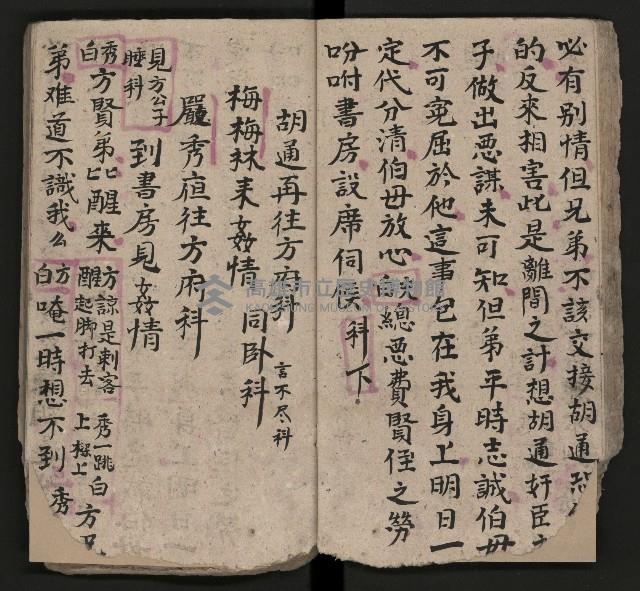 必有别情但兄弟不该交接胡通
的反來相害此是離間之計想胡通奸臣
子做出恶謀未可知但弟平時志誠伯毋
不可冤屈於他這事包在我身上明日一
定代分清伯毋放心 總恶費賢侄之勞
吩咐書房設席伺候科下
胡通再往方府科 言不尽科
梅梅抹来姦情同卧科
嚴秀宿往方府科
見方公子
睡科
到書房見姦情
秀
白
方賢弟匕匕醒来
方諒是刺客
醒起脚打去
秀一跳白
上 上
方兄
弟难道不識我么
方
白
唵一時想不到 秀
高雄市立歷史博物館
KAOHSIUNG MUSEUM OF HISTORY